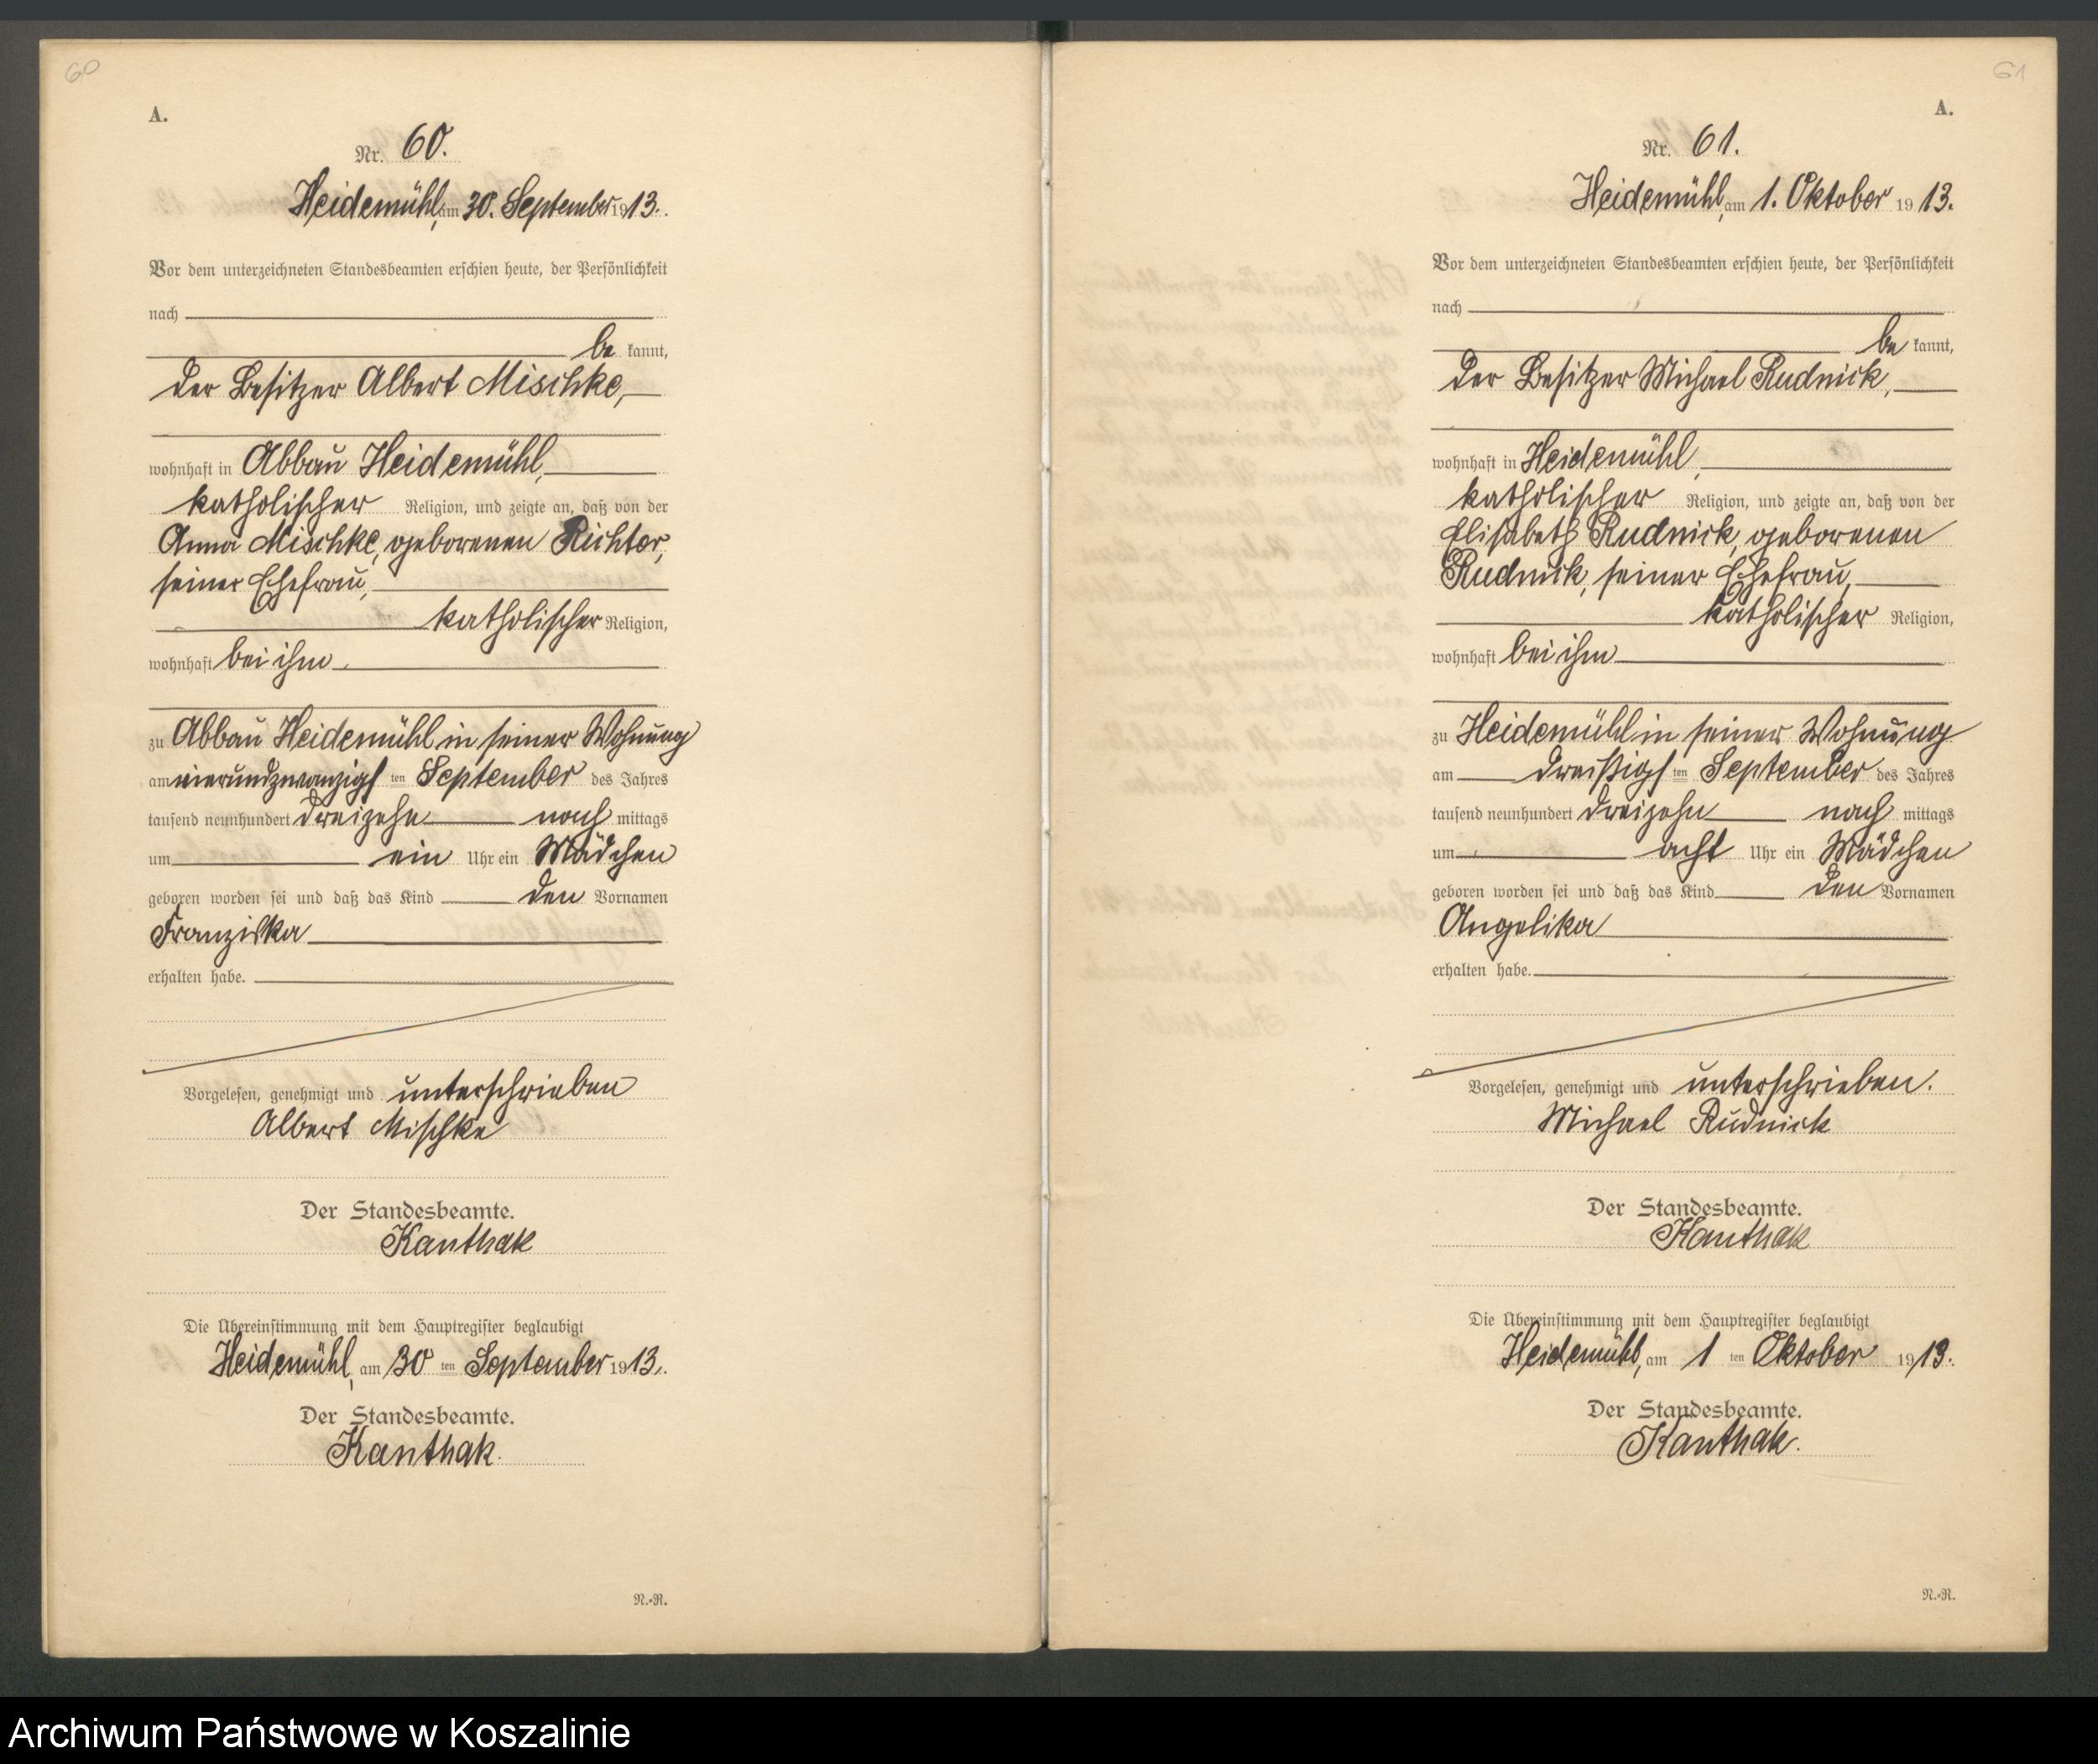 60
A.
Nr. 60.
Heidemühl, am 30. September 1913.
Vor dem unterzeichneten Standesbeamten erschien heute, der Persönlichkeit
nach
be kannt,
der Besitzer Albert Mischke,
wohnhaft in Abbau Heidemühl,
katholischer Religion, und zeigte an, daß von der
Anna Mischke, geborenen Richter,
seiner Ehefrau,
katholischer Religion,
wohnhaft bei ihm
zu Abbau Heidemühl in seiner Wohnung
am vierundzwanzigs ten September des Jahres
tausend neunhundert dreizehn nach mittags
um ein Uhr ein Mädchen
geboren worden sei und daß das Kind den Vornamen
Franziska
erhalten habe.
Vorgelesen, genehmigt und unterschrieben
Albert Mischke
Der Standesbeamte.
Kanthak
Die Übereinstimmung mit dem Hauptregister beglaubigt
Heidemühl, am 30 ten September 1913.
Der Standesbeamte.
Kanthak.
N.-R.
61
A.
Nr. 61.
Heidemühl, am 1. Oktober 1913.
Vor dem unterzeichneten Standesbeamten erschien heute, der Persönlichkeit
nach
be kannt,
der Besitzer Michael Rudnick,
wohnhaft in Heidemühl,
katholischer Religion, und zeigte an, daß von der
Elisabeth Rudnick, geborenen
Rudnick, seiner Ehefrau,
katholischer Religion,
wohnhaft bei ihm
zu Heidemühl in seiner Wohnung
am dreißigs ten September des Jahres
tausend neunhundert dreizehn nach mittags
um acht Uhr ein Mädchen
geboren worden sei und daß das Kind den Vornamen
Angelika
erhalten habe.
Vorgelesen, genehmigt und unterschrieben.
Michael Rudnick
Der Standesbeamte.
Kanthak
Die Übereinstimmung mit dem Hauptregister beglaubigt
Heidemühl, am 1 ten Oktober 1913.
Der Standesbeamte.
Kanthak.
N.-R.
Archiwum Państwowe w Koszalinie